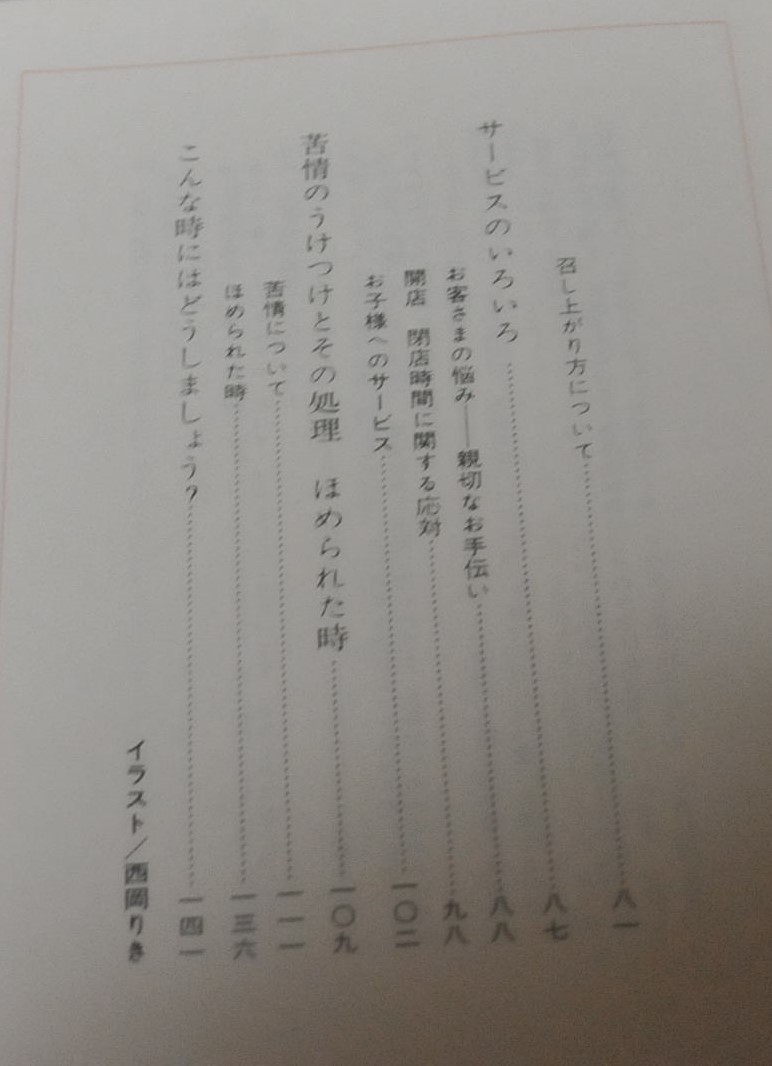 召し上がり方について……八一
サービスのいろいろ……八七
お客さまの悩み――親切なお手伝い……八八
開店　閉店時間に関する応対……九八
お子様へのサービス……一〇二
苦情のうけつけとその処理　ほめられた時……一〇九
苦情について……一一一
ほめられた時……一三六
こんな時にはどうしましょう？……一四一
イラスト／西岡りき